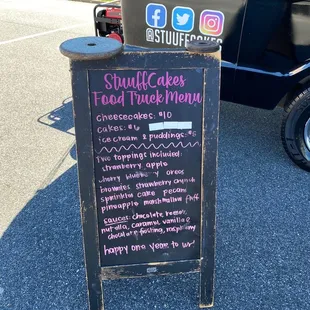 @STUUFFCAKES
StuuffCakes
Food Truck Menu
cheesecakes: $10
cakes: $6
ice cream & puddings: $5
Two toppings included:
strawberry apple
cherry blueberry oreos
brownies strawberry crunch
sprinkles cake pecans
pineapple marshmallow fluff
sauces: chocolate
nutella, caramel, vanilla &
chocolate frosting, raspberry
happy one year to us!